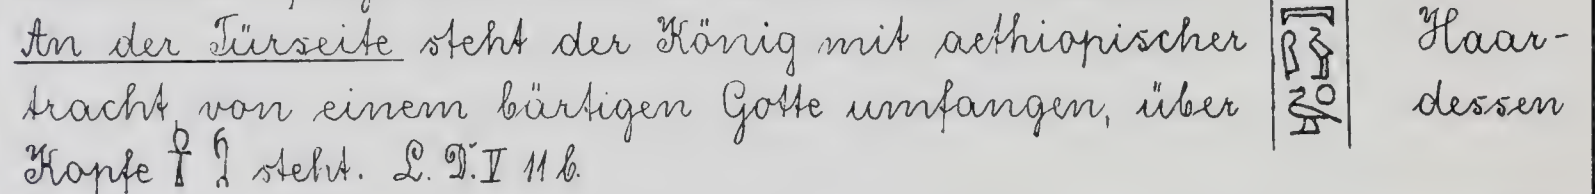 An der Türseite steht der König mit aethiopischer Haar-
tracht, von einem bärtigen Gotte umfangen, über dessen
Kopfe 𓋹 steht. L. D. V 11 b.